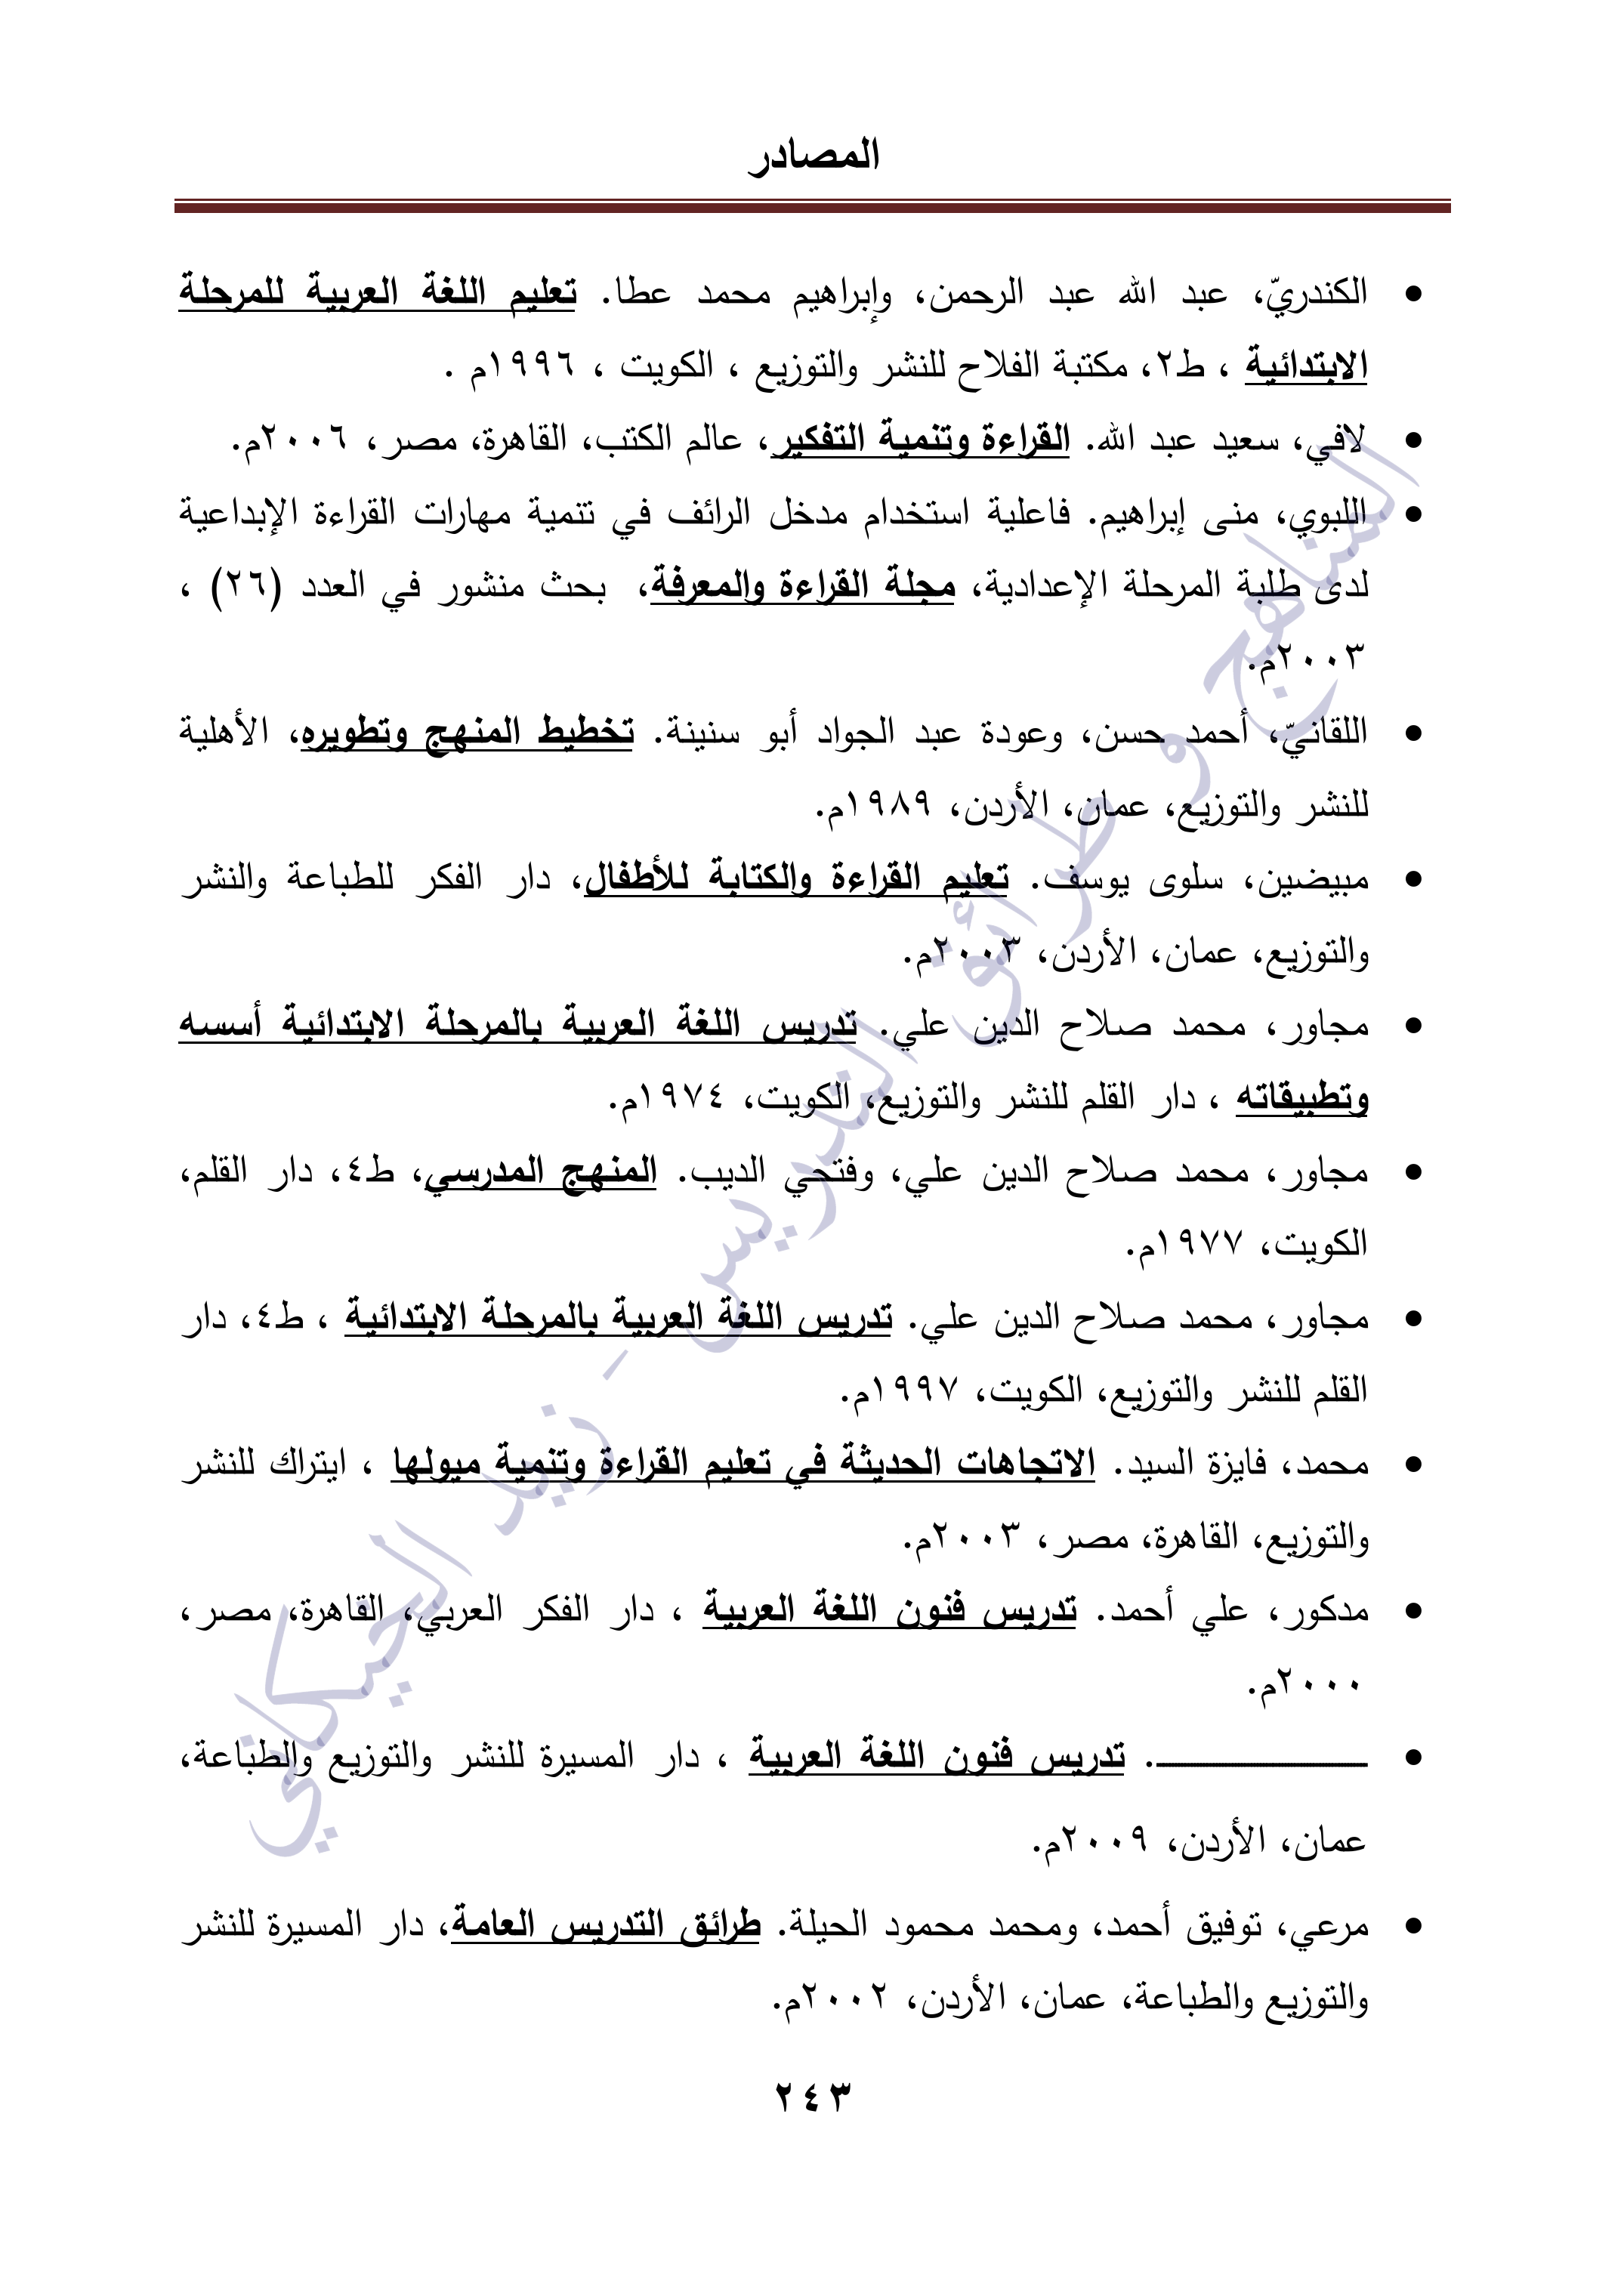 المصادر
• الكندريّ، عبد الله عبد الرحمن، وإبراهيم محمد عطا. تعليم اللغة العربية للمرحلة
الابتدائية ، ط٢، مكتبة الفلاح للنشر والتوزيع ، الكويت ، ١٩٩٦م .
• لافي، سعيد عبد الله. القراءة وتنمية التفكير، عالم الكتب، القاهرة، مصر، ٢٠٠٦م.
• اللبوي، منى إبراهيم. فاعلية استخدام مدخل الرائف في تنمية مهارات القراءة الإبداعية
لدى طلبة المرحلة الإعدادية، مجلة القراءة والمعرفة، بحث منشور في العدد (٢٦) ،
٢٠٠٣م.
• اللقانيّ، أحمد حسن، وعودة عبد الجواد أبو سنينة. تخطيط المنهج وتطويره، الأهلية
للنشر والتوزيع، عمان، الأردن، ١٩٨٩م.
• مبيضين، سلوى يوسف. تعليم القراءة والكتابة للأطفال، دار الفكر للطباعة والنشر
والتوزيع، عمان، الأردن، ٢٠٠٣م.
• مجاور، محمد صلاح الدين علي. تدريس اللغة العربية بالمرحلة الابتدائية أسسه
وتطبيقاته ، دار القلم للنشر والتوزيع، الكويت، ١٩٧٤م.
• مجاور، محمد صلاح الدين علي، وفتحي الديب. المنهج المدرسي، ط٤، دار القلم،
الكويت، ١٩٧٧م.
• مجاور، محمد صلاح الدين علي. تدريس اللغة العربية بالمرحلة الابتدائية ، ط٤، دار
القلم للنشر والتوزيع، الكويت، ١٩٩٧م.
• محمد، فايزة السيد. الاتجاهات الحديثة في تعليم القراءة وتنمية ميولها ، ايتراك للنشر
والتوزيع، القاهرة، مصر، ٢٠٠٣م.
• مدكور، علي أحمد. تدريس فنون اللغة العربية ، دار الفكر العربي، القاهرة، مصر،
٢٠٠٠م.
• ـــــــــــــــــ. تدريس فنون اللغة العربية ، دار المسيرة للنشر والتوزيع والطباعة،
عمان، الأردن، ٢٠٠٩م.
• مرعي، توفيق أحمد، ومحمد محمود الحيلة. طرائق التدريس العامة، دار المسيرة للنشر
والتوزيع والطباعة، عمان، الأردن، ٢٠٠٢م.
٢٤٣
المناهج و طرائق التدريس - زيد الخيكاني